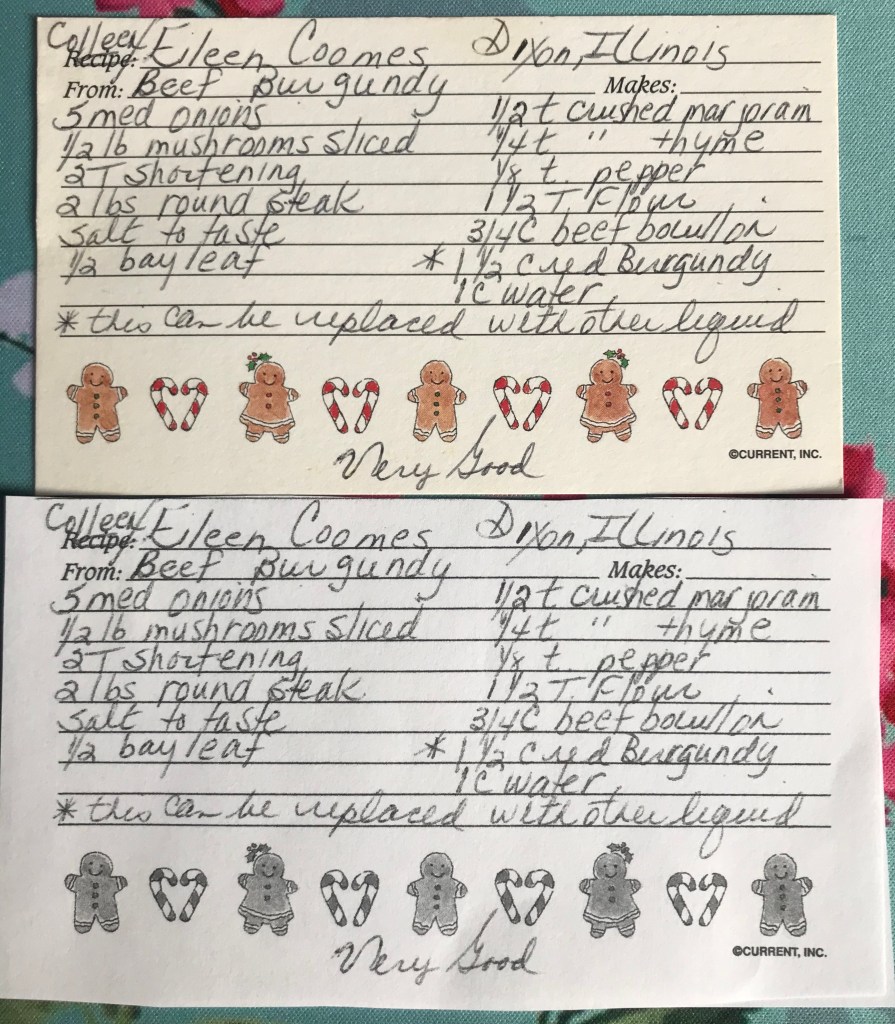 Colleen/
Recipe: Eileen Coomes Dixon, Illinois
From: Beef Burgundy Makes:
5 med onions 1/2 t crushed marjoram
1/2 lb mushrooms sliced 1/4 t " thyme
2T shortening 1/8 t. pepper
2 lbs round steak 1 1/2 T. Flour
salt to taste 3/4C beef bouillon
1/2 bay leaf * 1 1/2 c red Burgundy
1C water
* this can be replaced with other liquid
©CURRENT, INC.
Very Good
Colleen/
Recipe: Eileen Coomes Dixon, Illinois
From: Beef Burgundy Makes:
5 med onions 1/2 t crushed marjoram
1/2 lb mushrooms sliced 1/4 t " thyme
2T shortening 1/8 t. pepper
2 lbs round steak 1 1/2 T. Flour
salt to taste 3/4C beef bouillon
1/2 bay leaf * 1 1/2 c red Burgundy
1C water
* this can be replaced with other liquid
©CURRENT, INC.
Very Good